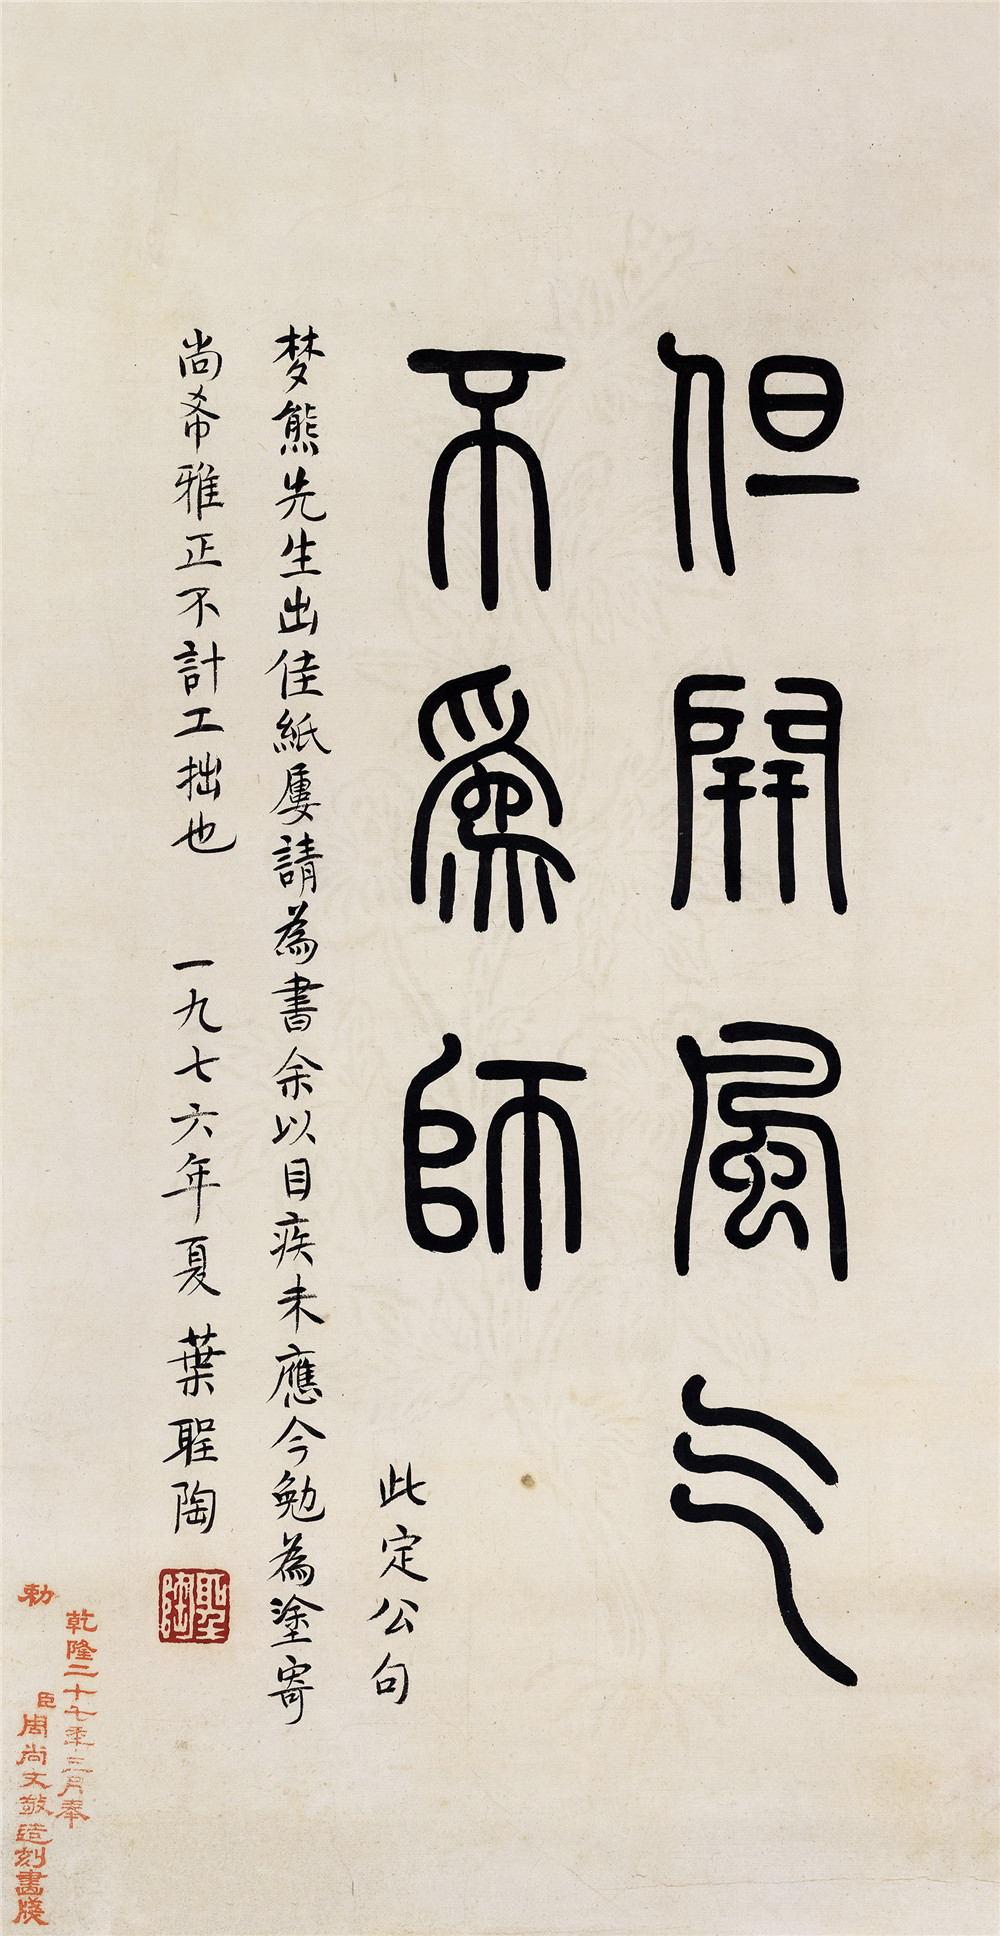 但開風气
不為師
此定公句
梦熊先生出佳紙屢請為書余以目疾未應今勉為塗寄
尚希雅正不計工拙也 一九七六年夏 葉聖陶
聖陶
乾隆二十七年三月奉
勅
臣周尚文敬造刻畫牋